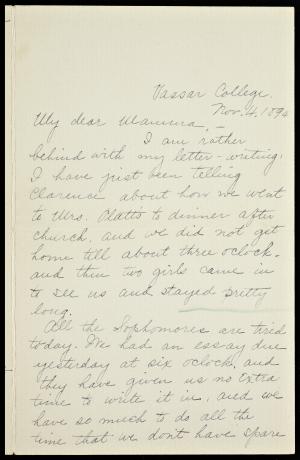 Vassar College.
Nov. 4, 1894
My dear Mamma,—
I am rather
behind with my letter-writing.
I have just been telling
Clarence about how we went
to Mrs. Platt's to dinner after
church, and we did not get
home till about three oclock.
and then two girls came in
to see us and stayed pretty
long.
All the Sophomores are tired
today. We had an essay due
yesterday at six oclock, and
they have given us no extra
time to write it in, and we
have so much to do all the
time that we dont have spare